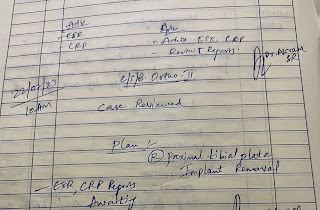 Adv
- ESR
- CRP
Adv
- Advice ESR, CRP
Review & Reports.
Dr. Akram
SR
22/02/23
10 AM
C/S/B Ortho-II
Case Reviewed
Plan
(R) proximal tibial plate
Implant Removal
- ESR CRP Reports
Awaiting